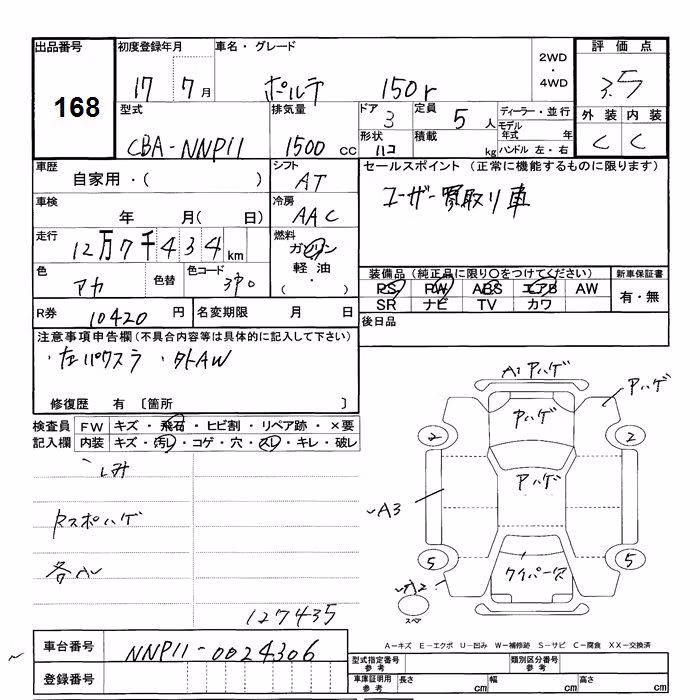 出品番号 初度登録年月 車名・グレード 2WD ・ 4WD 評価点
168 17 7月 ポルテ 150r 3.5
型式 排気量 ドア 定員 ディーラー・並行 外装 内装
CBA-NNP11 1500 CC 3 5人 モデル年式 年 C C
形状 ハコ 積載 kg ハンドル 左・右
車歴 シフト セールスポイント (正常に機能するものに限ります)
自家用・( ) AT ユーザー買取り車
車検 冷房
年 月( 日) AAC
走行 燃料
12万7千434km ガソリン
軽油
・( )
色 色替 色コード
アカ 3P0
装備品(純正品に限り○をつけてください) 新車保証書
PS PW ABS エアB AW 有・無
SR ナビ TV カワ
R券 10420円 名変期限 月 日 後日品
注意事項申告欄(不具合内容等は具体的に記入して下さい)
・左パワスラ ・外AW
修復歴 有 〔箇所 〕
検査員記入欄 FW キズ・飛石・ヒビ割・リペア跡・×要
内装 キズ・汚レ・コゲ・穴・スレ・キレ・破レ
シミ
127435
A1 アハゲ
アハゲ アハゲ
2 2
アハゲ
A3
5 5
ワイパー欠
A2
スペア
A-キズ E-エクボ U-凹み W-補修跡 S-サビ C-腐食 XX-交換済
車台番号 NNP11-0024306
登録番号
型式指定番号 参考 類別区分番号 参考
車庫証明用 参考 長さ cm 幅 cm 高さ cm